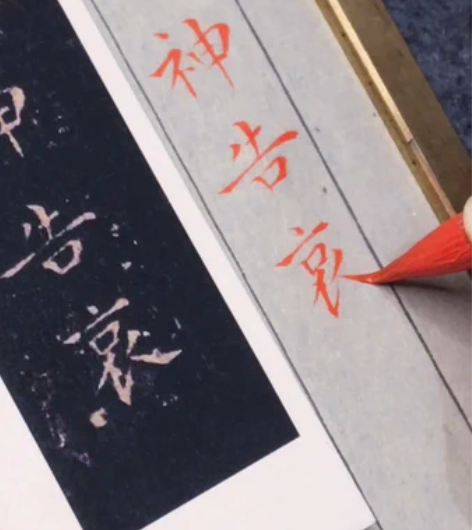 神告哀
告哀